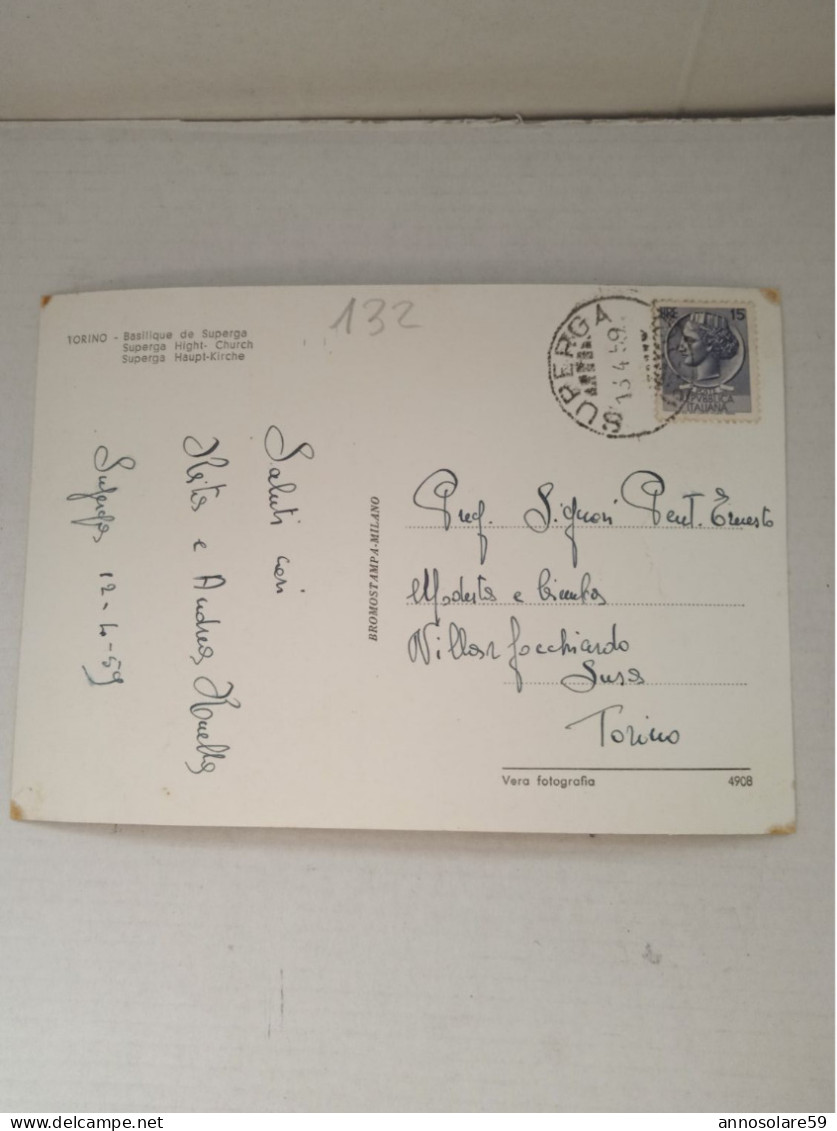 132
TORINO - Basilique de Superga
Superga Hight- Church
Superga Haupt-Kirche
SUPERGA
13 4 59
LIRE 15
REPVBBLICA
ITALIANA
Saluti cari
e Andrea
Superga 12-4-59
BROMOSTAMPA-MILANO
Signori Ernesto
Modesta e
Villar Focchiardo
Susa
Torino
Vera fotografia 4908
delcampe.net
annosolare59